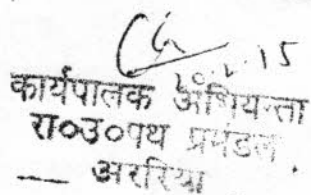 कार्यपालक अभियन्ता
रा०उ०पथ प्रमंडल
अररिया